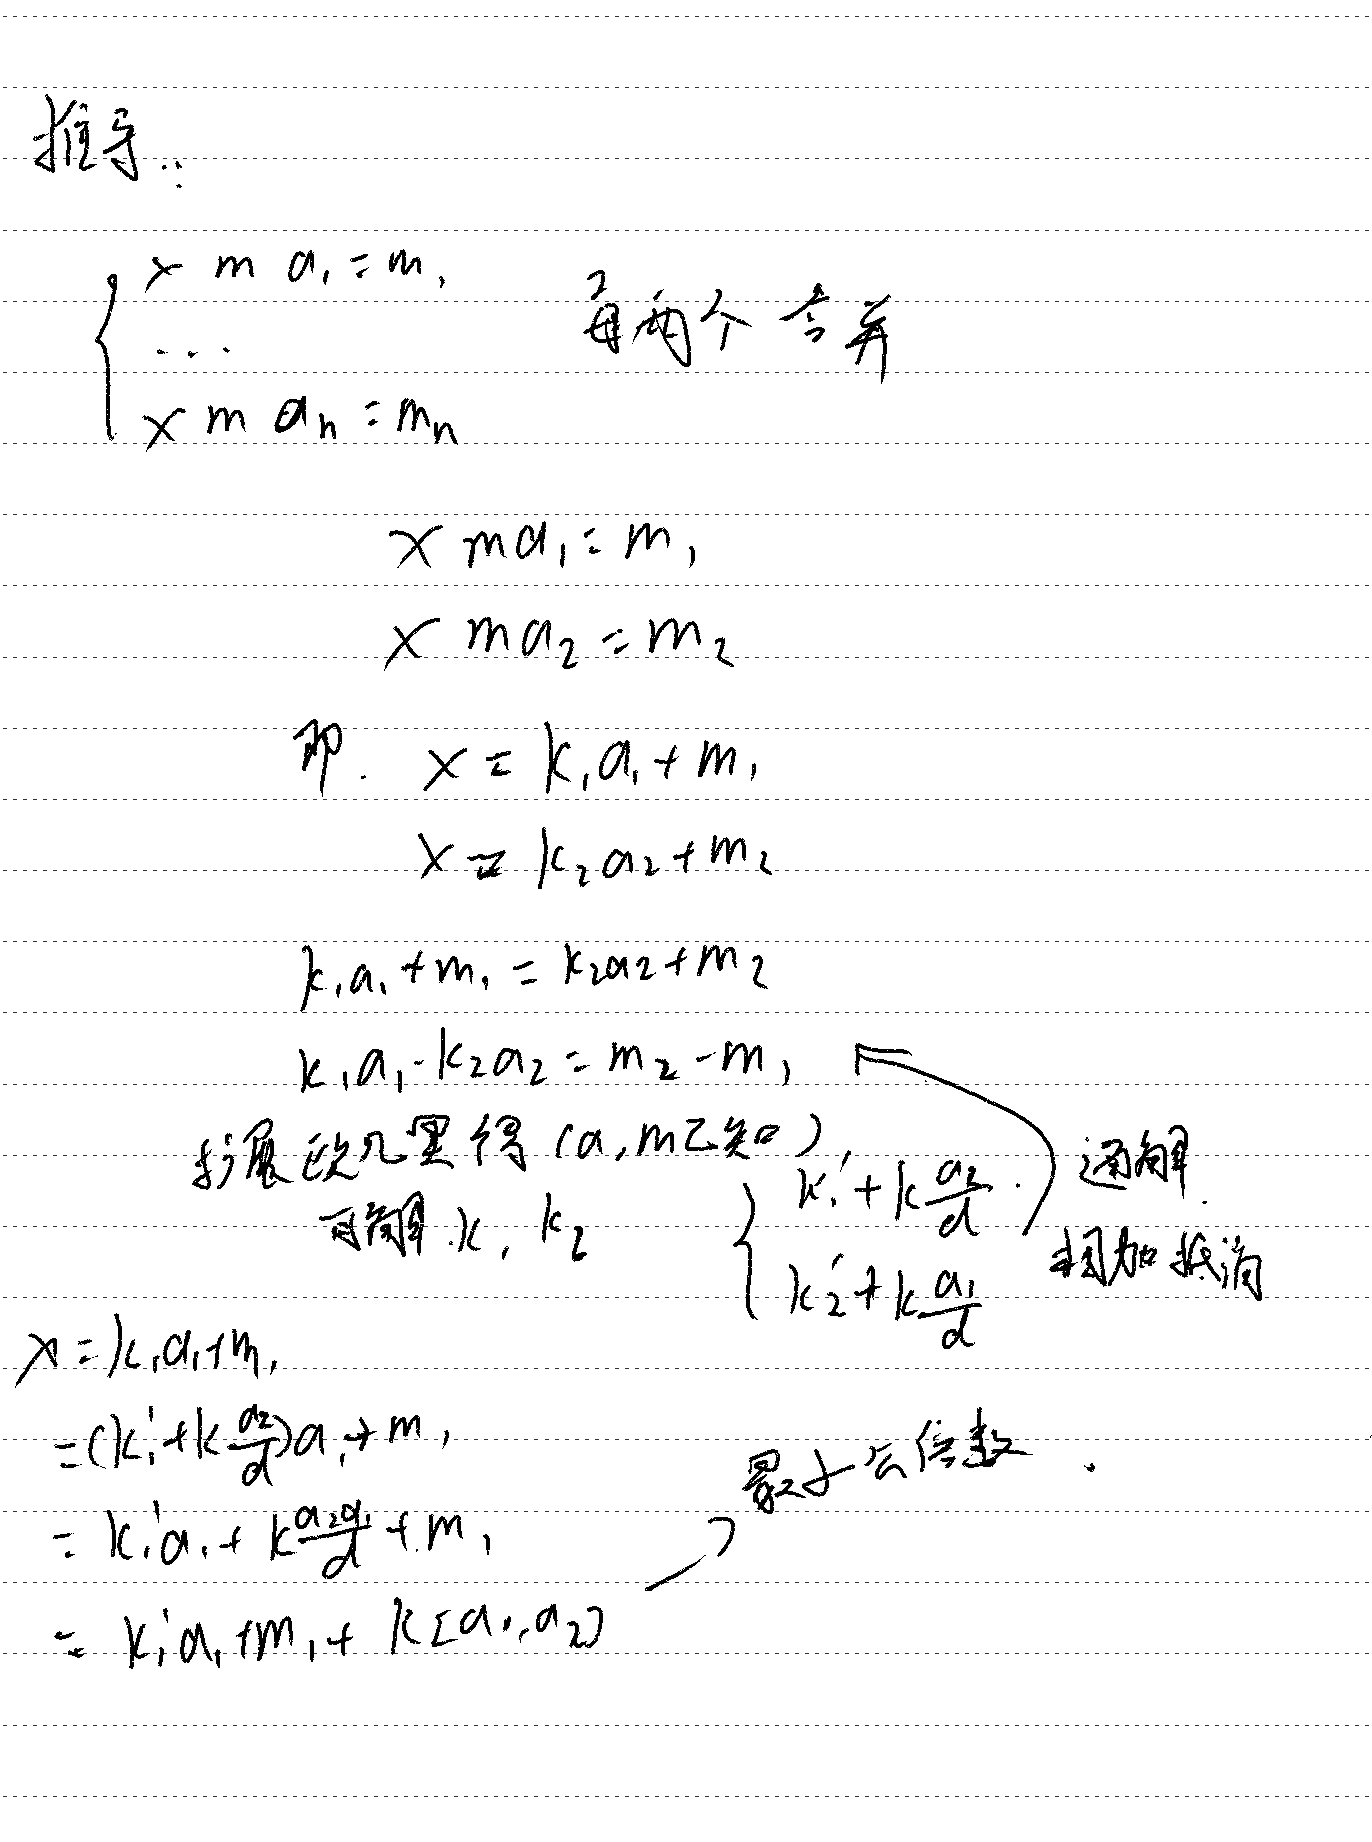 推导:
x m a₁ = m₁
...
每两个合并
x m aₙ = mₙ
x m a₁ = m₁
x m a₂ = m₂
即. x = k₁a₁ + m₁
x = k₂a₂ + m₂
k₁a₁ + m₁ = k₂a₂ + m₂
k₁a₁ - k₂a₂ = m₂ - m₁
扩展欧几里得 (a, m已知)
可解 k₁ k₂
k₁' + k a₂/d
k₂' + k a₁/d
通解.
相加抵消
x = k₁a₁ + m₁
= (k₁' + k a₂/d)a₁ + m₁
= k₁'a₁ + k a₂a₁/d + m₁
最小公倍数.
= k₁'a₁ + m₁ + k[a₁, a₂]